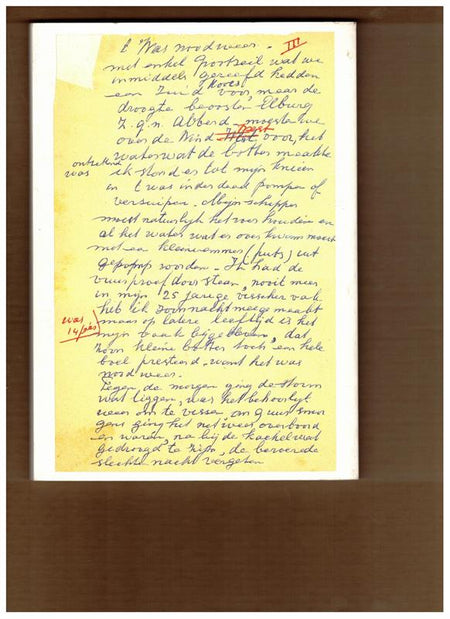 't Was noodweer. III
met enkel Grootzeil wat we
inmiddels gereefd hadden
een Zuid Koers voor, maar de
droogte beoosten Elburg
Z.g.n. Abberd moesten we
over de Wind West voor, het
water wat de botter maakte
ontzettend was
ik stond er tot mijn knieen
in t was inderdaad pompen of
verzuipen. Mijn schipper
moest natuurlijk het roer houden en
al het water wat er over kwam moest
met een kleine emmer (puts) uit
gepompt worden. Ik had de
vuurproef doorstaan, nooit meer
in mijn 25 jarige visscher vak
heb ik zoon nacht meegemaakt
was 14 jaar
maar op latere leeftijd is het
mijn vaak bijgebleven, dat
zoon kleine botter toch een hele
boel presteerd want het was
noodweer.
Tegen de morgen ging de storm
wat liggen, was het behoorlijk
weer om te vissen, om 9 uur smor
gens ging het net weer overboord
en waren, na bij de kachel wat
gedroogd te zijn, de beroerde
slechte nacht vergeten